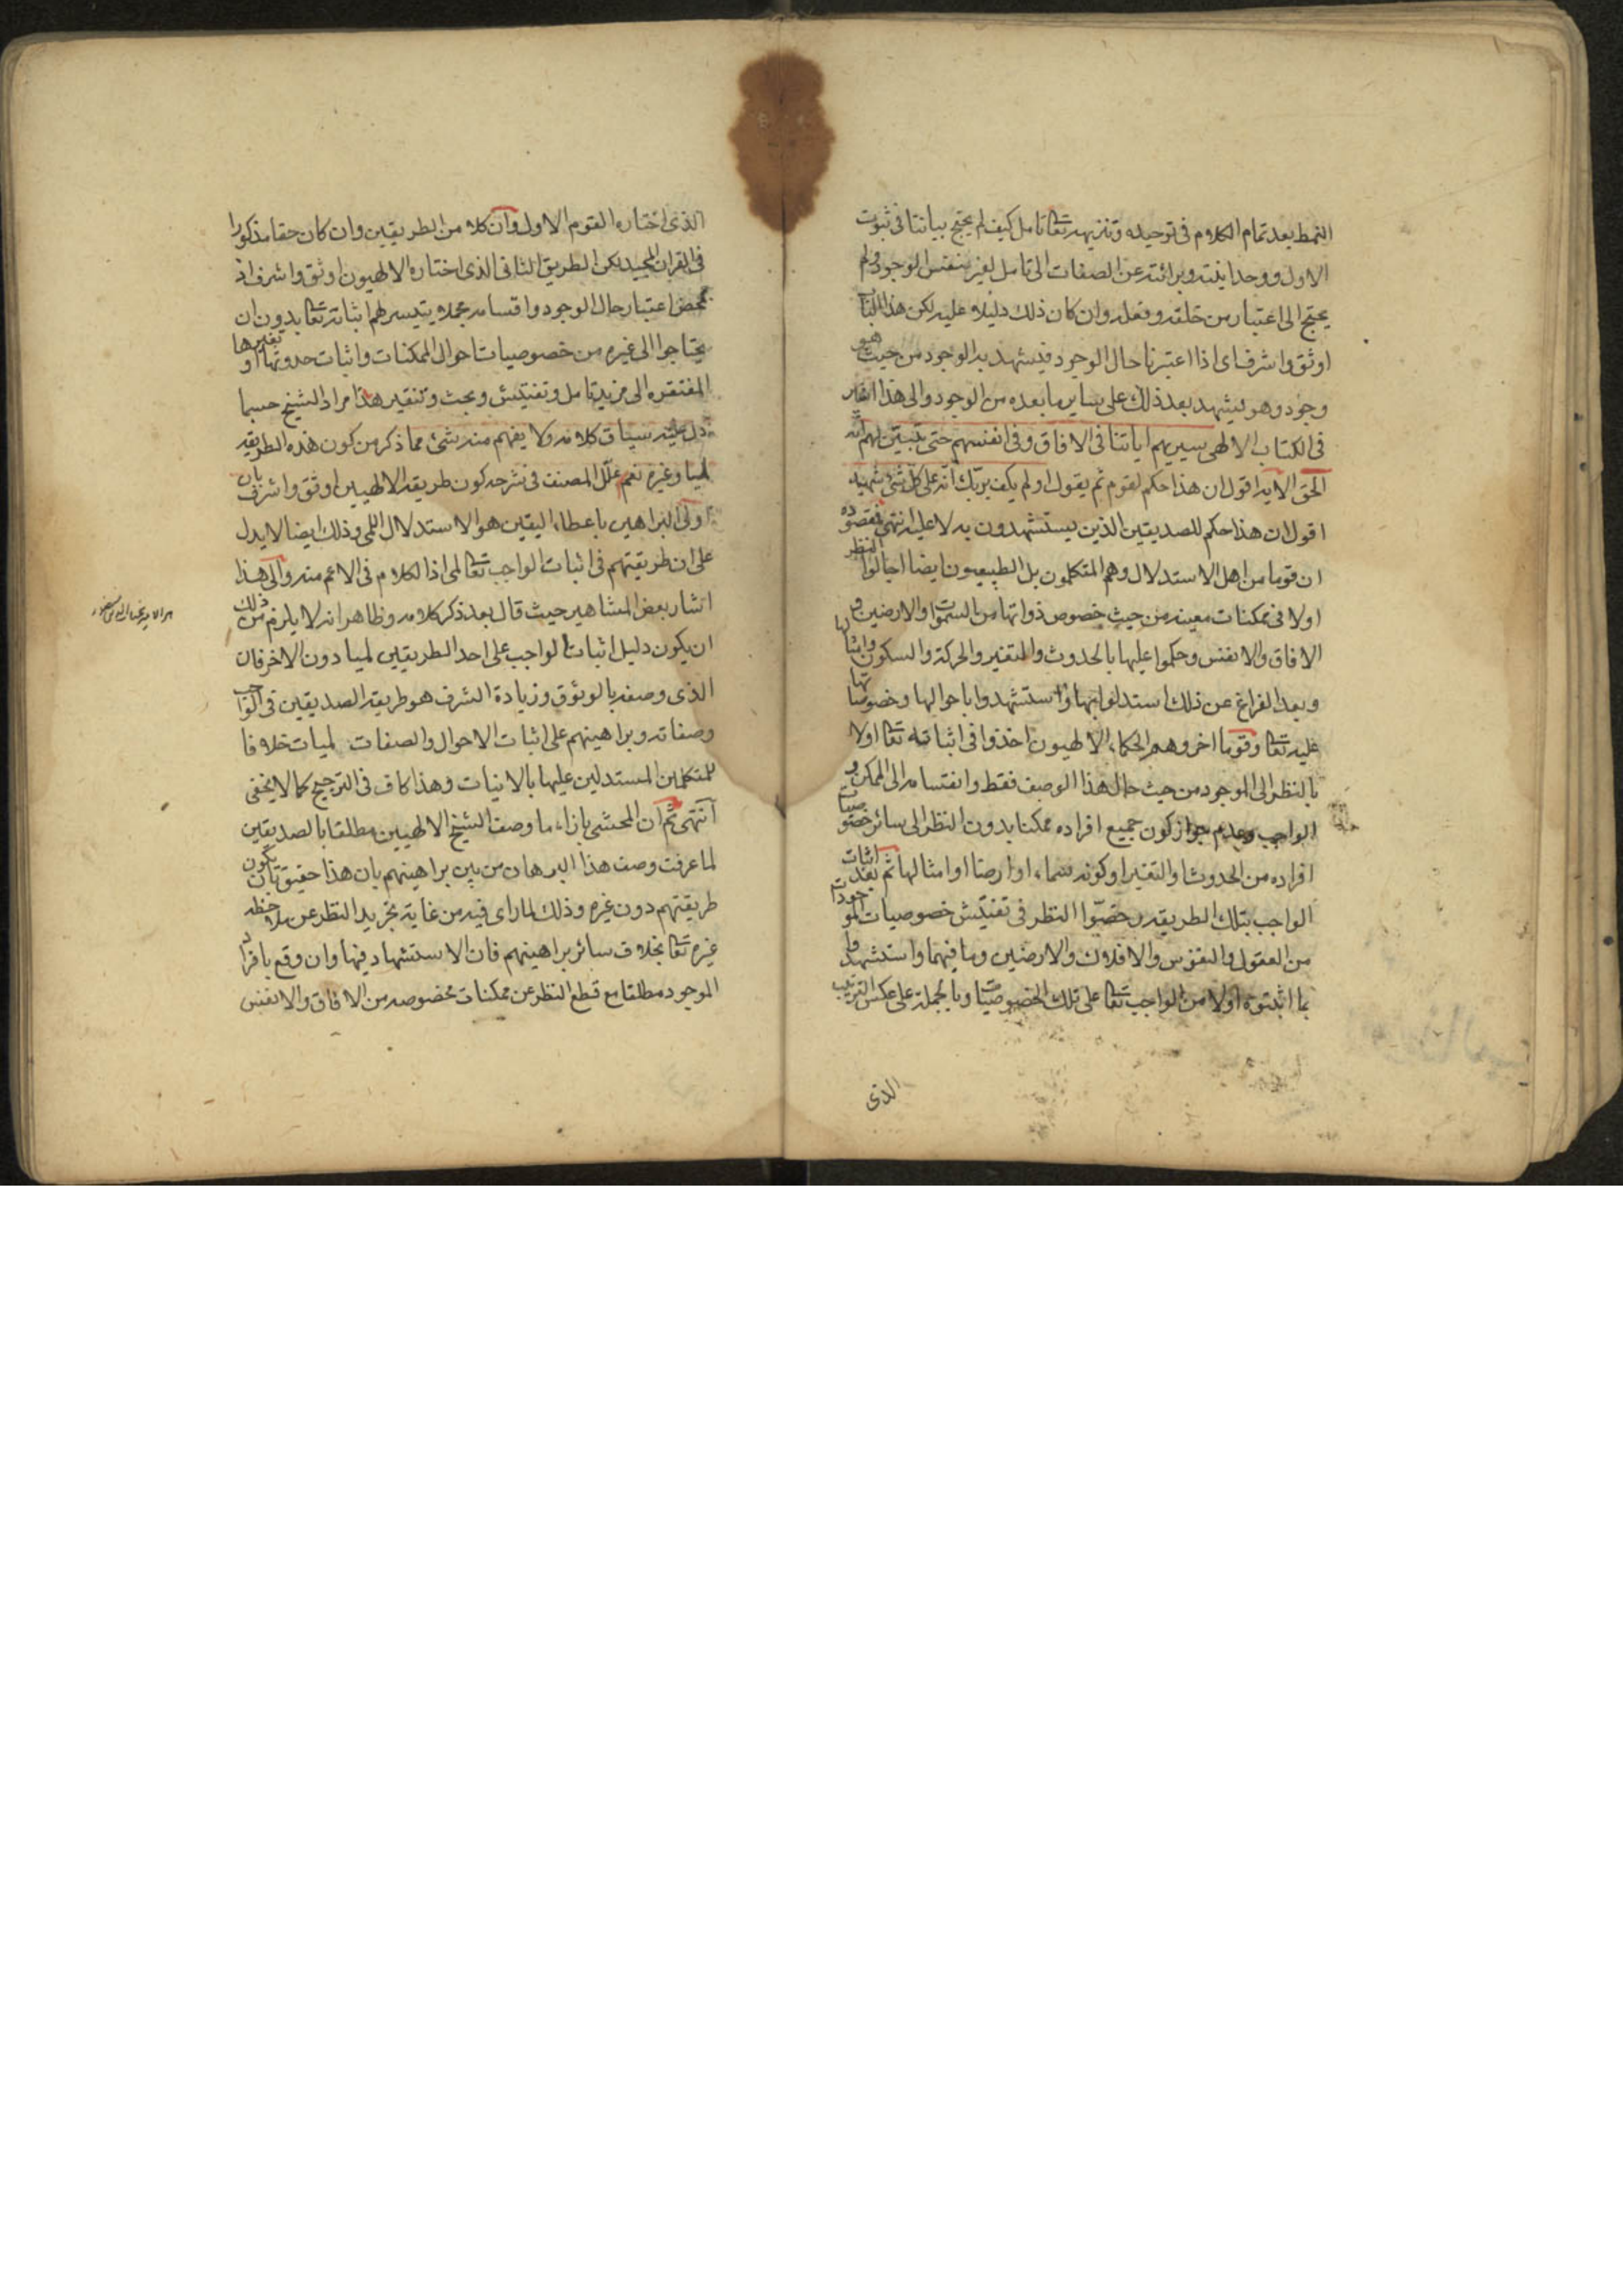 النمط بعد تمام الكلام فى توحيده وتنزيهه تعا تامل كيف لم يحتج بياننا فى ثبوت
الاول ووحدانيته وبرائته عن الصفات الى تامل لغير نفس الوجود ولم
يحتج الى اعتبار من خلقه وفعله وان كان ذلك دليلا عليه لكن هذا الباب
اوثق واشرف اى اذا اعتبرنا حال الوجود فيشهد به الوجود من حيث هو
وجود وهو يشهد بعد ذلك على ساير ما بعده من الوجود والى هذا اشار
فى الكتاب الالهى سيريهم اياتنا فى الافاق وفى انفسهم حتى يتبين لهم انه
الحق الاية اقول ان هذا حكم لقوم ثم يقول اولم يكف بربك انه على كل شئ شهيد
اقول ان هذا حكم للصديقين الذين يستشهدون به لا عليه انتهى فمقصوده
ان قوما من اهل الاستدلال وهم المتكلمون بل الطبيعيون ايضا اجالوا النظر
اولا فى ممكنات معينه من حيث خصوص ذواتها من السموات والارضين و
الافاق والانفس وحكموا عليها بالحدوث والتغير والحركة والسكون وامثالها
وبعد الفراغ عن ذلك استدلوا بها واستشهدوا باحوالها وخصوصياتها
عليه تعا وقوما اخر وهم الحكماء الالهيون اخذوا فى اثباته تعا اولا
بالنظر الى الموجود من حيث حال هذا الوصف فقط وانقسامه الى الممكن و
الواجب وعدم جواز كون جميع افراده ممكنا بدون النظر الى سائر خصوصيات
افراده من الحدوث او التغير او كونه سماء او ارضا او امثالها ثم بعد اثبات
الواجب بتلك الطريقه خصوا النظر فى تفتيش خصوصيات الموجودات
من العقول والنفوس والافلاك والارضين وما فيهما واستشهدوا
بما اثبتوه اولا من الواجب تعا على تلك الخصوصيات وبالجملة على عكس الترتيب
الذى
الذى اختاره القوم الاول وان كلا من الطريقين وان كان حقا مذكورا
فى القران المجيد لكن الطريق الثانى الذى اختاره الالهيون اوثق واشرف اذ
بمحض اعتبار حال الوجود واقسامه مجملا يتيسر لهم اثباته تعا بدون ان
يحتاجوا الى غيره من خصوصيات احوال الممكنات واثبات حدوثها او تغيرها
المفتقره الى مزيد تامل وتفتيش وبحث وتنقير هذا مراد الشيخ حسبما
دل عليه سياق كلامه ولا يفهم منه شئ مما ذكر من كون هذه الطريقه
لميا وغيره نعم علل المصنف فى شرحه كون طريقه الالهيين اوثق واشرف بان
اولى البراهين باعطاء اليقين هو الاستدلال اللمى وذلك ايضا لا يدل
على ان طريقتهم فى اثبات الواجب تعا لمى اذا الكلام فى الاعم منه والى هذا
اشار بعض المشاهير حيث قال بعد ذكر كلامه وظاهر انه لا يلزم من ذلك
ان يكون دليل اثبات الواجب على احد الطريقين لميا دون الاخر فان
الذى وصفه بالوثوق وزيادة الشرف هو طريقه الصديقين فى الواجب
وصفاته وبراهينهم على اثبات الاحوال والصفات لميات خلافا
للمتكلمين المستدلين عليها بالانيات وهذا كاف فى الترجيح كما لا يخفى
انتهى ثم ان المحشى بازاء ما وصف الشيخ الالهيين مطلقا بالصديقين
لما عرفت وصف هذا البرهان من بين براهينهم بان هذا حقيق بان يكون
طريقتهم دون غيره وذلك لما راى فيه من غاية تجريد النظر عن ملاحظه
غيره تعا بخلاف سائر براهينهم فان الاستشهاد فيها وان وقع بافراد
الموجود مطلقا مع قطع النظر عن ممكنات مخصوصه من الافاق والانفس